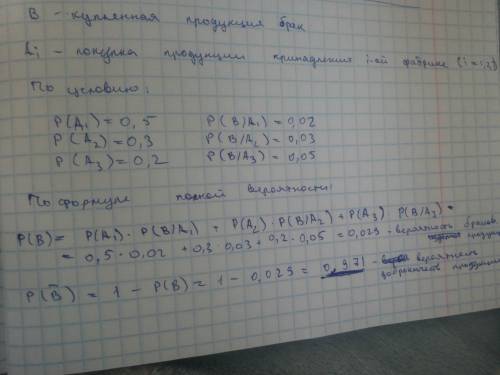 B - купленная продукция брак
Ai - покупка продукции принадлежит i-ой фабрике (i = 1,2,3)
По условию:
P(A1) = 0,5 P(B/A1) = 0,02
P(A2) = 0,3 P(B/A2) = 0,03
P(A3) = 0,2 P(B/A3) = 0,05
По формуле полной вероятности:
P(B) = P(A1) · P(B/A1) + P(A2) · P(B/A2) + P(A3) P(B/A3) =
= 0,5 · 0,02 + 0,3 · 0,03 + 0,2 · 0,05 = 0,029 - вероятность
P(B̅) = 1 - P(B) = 1 - 0,029 = 0,971 - вероятность
продукции